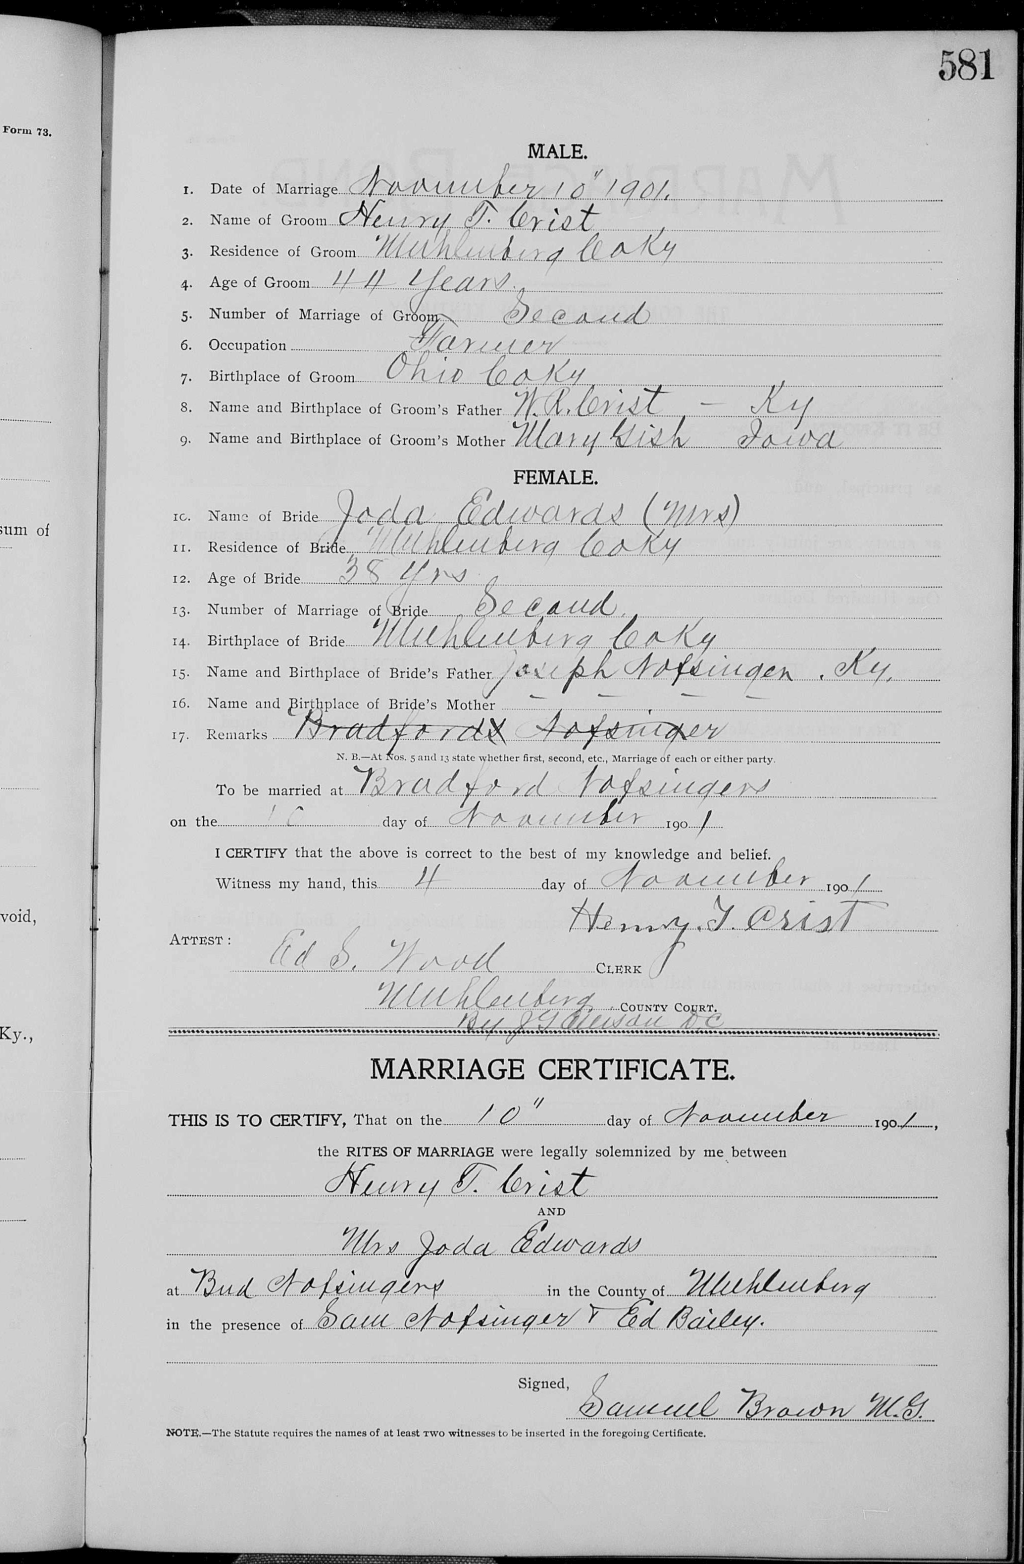 581
Form 73.
MALE.
1. Date of Marriage November 10" 1901.
2. Name of Groom Henry T. Crist
3. Residence of Groom Muhlenberg Co Ky
4. Age of Groom 44 Years.
5. Number of Marriage of Groom Second
6. Occupation Farmer
7. Birthplace of Groom Ohio Co Ky
8. Name and Birthplace of Groom's Father W. R. Crist — Ky
9. Name and Birthplace of Groom's Mother Mary Gish Iowa
FEMALE.
10. Name of Bride Joda Edwards (Mrs)
11. Residence of Bride Muhlenberg Co Ky
12. Age of Bride 38 yrs
13. Number of Marriage of Bride Second
14. Birthplace of Bride Muhlenberg Co Ky
15. Name and Birthplace of Bride's Father Joseph Nofsinger. Ky.
16. Name and Birthplace of Bride's Mother — — — —
17. Remarks Bradfords Nofsinger
N. B.—At Nos. 5 and 13 state whether first, second, etc., Marriage of each or either party.
To be married at Bradford Nofsingers
on the 10 day of November 1901
I CERTIFY that the above is correct to the best of my knowledge and belief.
Witness my hand, this 4 day of November 1901
Henry. T. Crist
ATTEST:
Ed S. Wood CLERK
Muhlenberg COUNTY COURT.
By J G D C
MARRIAGE CERTIFICATE.
THIS IS TO CERTIFY, That on the 10" day of November 1901,
the RITES OF MARRIAGE were legally solemnized by me between
Henry T. Crist
AND
Mrs Joda Edwards
at Bud Nofsingers in the County of Muhlenberg
in the presence of Sam Nofsinger & Ed Bailey.
Signed,
Samuel Brown M.G.
NOTE.—The Statute requires the names of at least TWO witnesses to be inserted in the foregoing Certificate.
sum of
void,
Ky.,